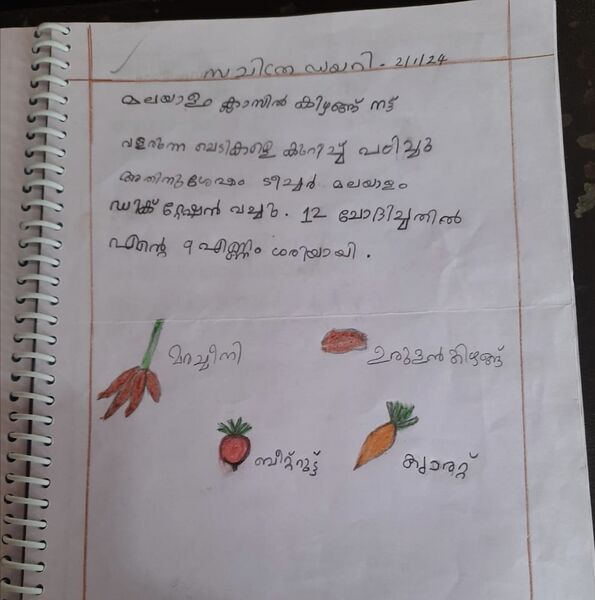 സചിത്ര ഡയറി - 2/1/24
മലയാളം ക്ലാസിൽ കിഴങ്ങ് നട്ട്
വളരുന്ന ചെടികളെ കുറിച്ച് പഠിച്ചു
അതിനുശേഷം ടീച്ചർ മലയാളം
ഡിക്ക് റ്റേഷൻ വച്ചു. 12 ചോദിച്ചതിൽ
എന്റെ 9 എണ്ണം ശരിയായി.
മരച്ചീനി
ഉരുളൻ കിഴങ്ങ്
ബീറ്റ്റൂട്ട്
ക്യാരറ്റ്